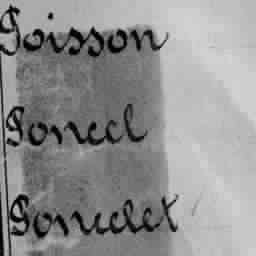 Poisson
Poncel
Poncelet